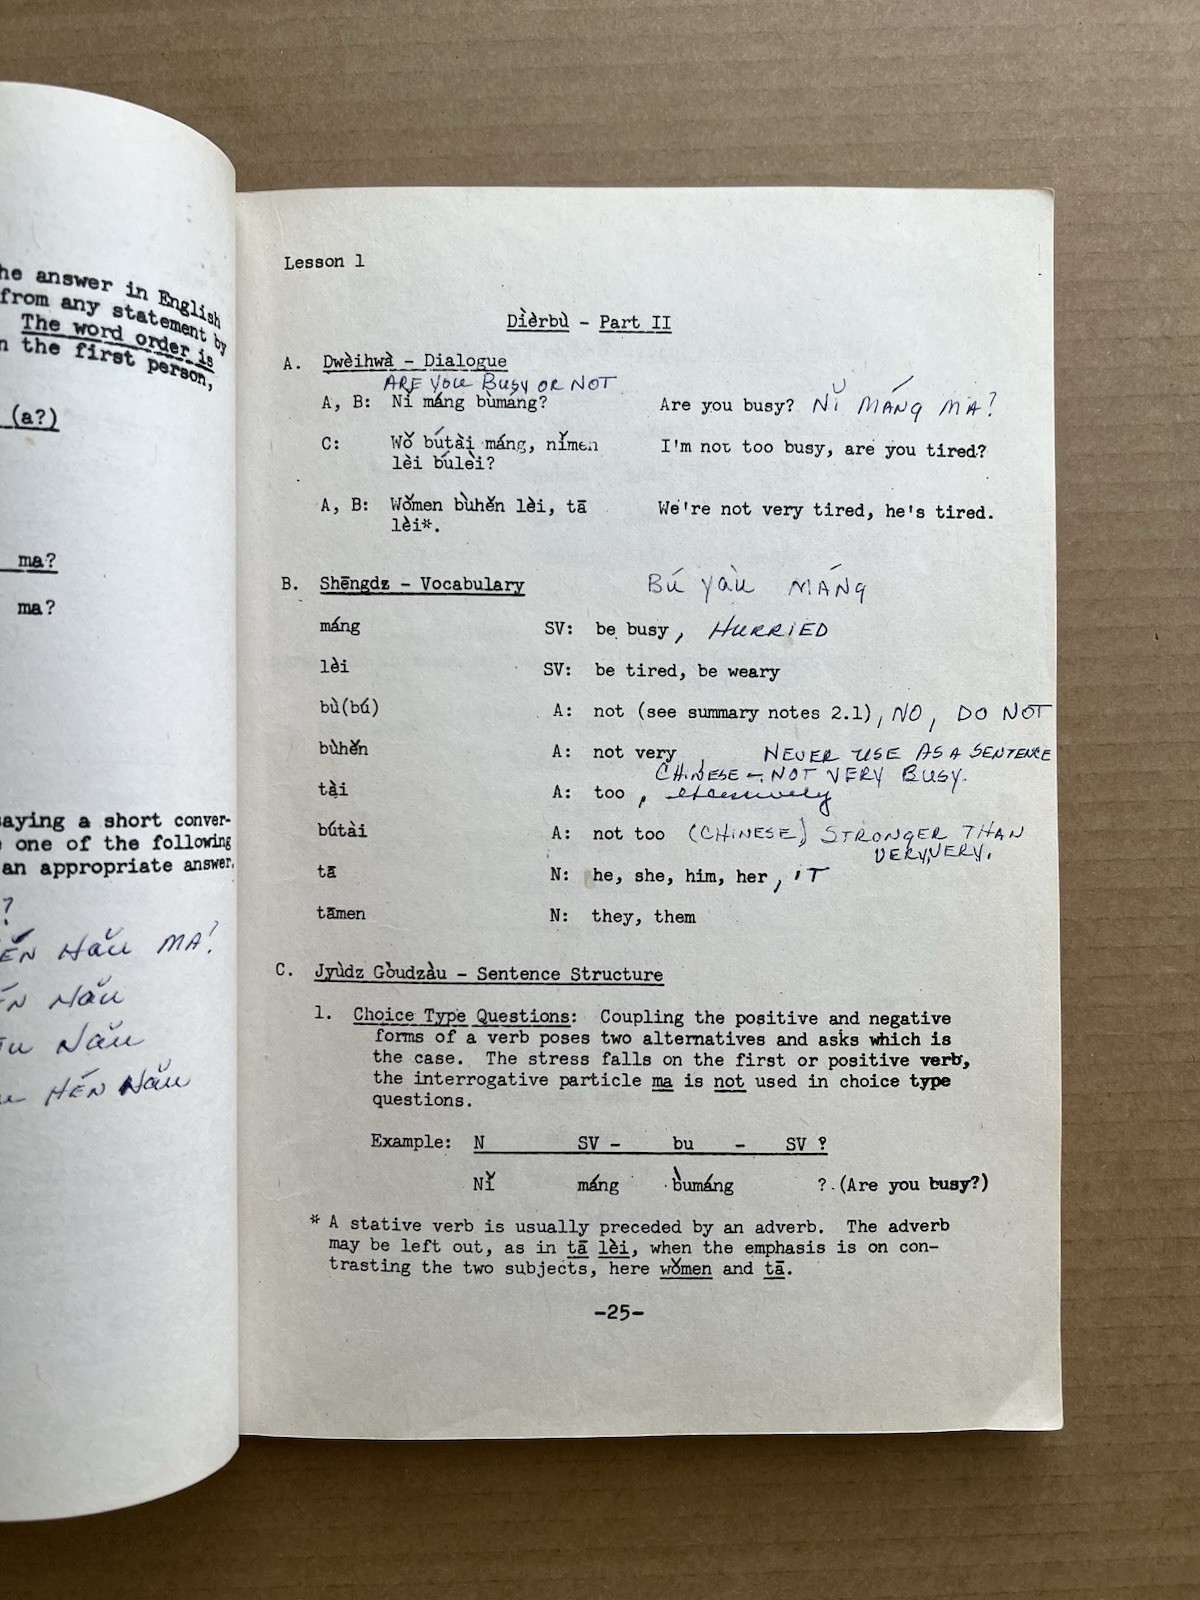 he answer in English
from any statement by
The word order is
n the first person,
(a?)
ma?
ma?
saying a short conver-
one of the following
an appropriate answer.
?
HǍU MA?
HǍU
HǍU
HÉN HǍU
Lesson 1
Dìèrbù - Part II
A. Dwèihwà - Dialogue
ARE YOU BUSY OR NOT
A, B: Nǐ máng bùmáng? Are you busy? NǏ MÁNG MA?
C: Wǒ bútài máng, nǐmen I'm not too busy, are you tired?
lèi búlèi?
A, B: Wǒmen bùhěn lèi, tā We're not very tired, he's tired.
lèi*.
B. Shēngdz - Vocabulary BÚ YÀU MÁNG
máng SV: be busy, HURRIED
lèi SV: be tired, be weary
bù(bú) A: not (see summary notes 2.1), NO, DO NOT
bùhěn A: not very NEVER USE AS A SENTENCE
CHINESE - NOT VERY BUSY.
tài A: too, excessively
bútài A: not too (CHINESE) STRONGER THAN
VERY, VERY.
tā N: he, she, him, her, IT
tāmen N: they, them
C. Jyùdz Gòudzàu - Sentence Structure
1. Choice Type Questions: Coupling the positive and negative
forms of a verb poses two alternatives and asks which is
the case. The stress falls on the first or positive verb,
the interrogative particle ma is not used in choice type
questions.
Example: N SV - bu - SV ?
Nǐ máng bùmáng ? (Are you busy?)
* A stative verb is usually preceded by an adverb. The adverb
may be left out, as in tā lèi, when the emphasis is on con-
trasting the two subjects, here wǒmen and tā.
-25-